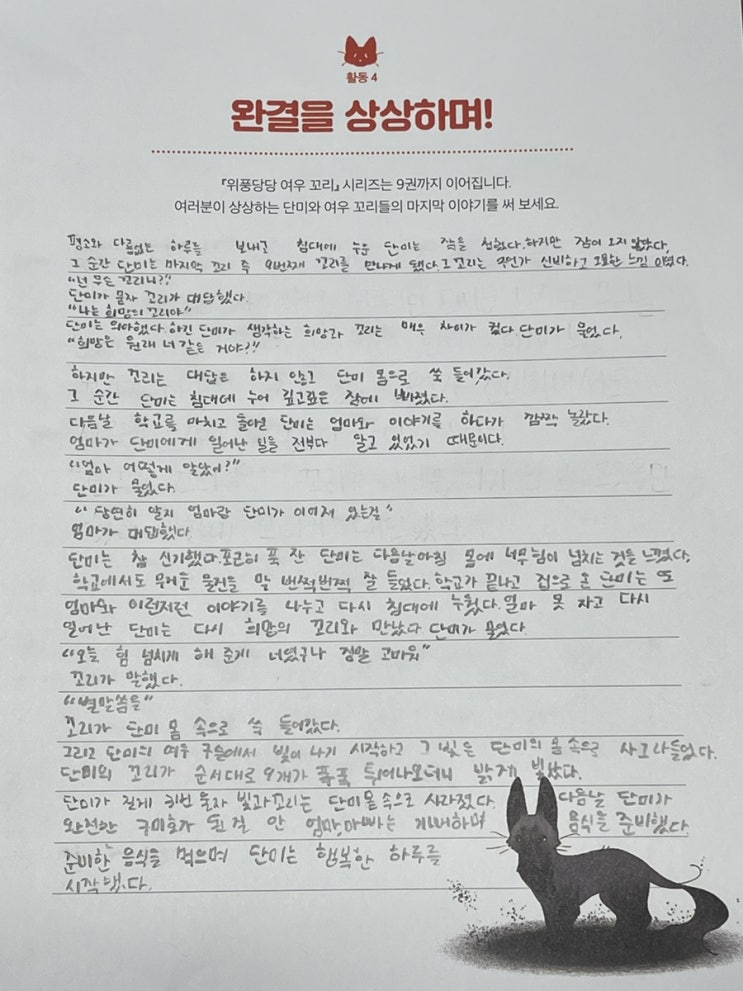 활동 4
완결을 상상하며!
『위풍당당 여우 꼬리』 시리즈는 9권까지 이어집니다.
여러분이 상상하는 단미와 여우 꼬리들의 마지막 이야기를 써 보세요.
평소와 다름없는 하루를 보내고 침대에 누운 단미는 잠을 청했다. 하지만 잠이 오지 않았다,
그 순간 단미는 마지막 꼬리 즉 9번째 꼬리를 만나게 됐다. 그 꼬리는 무언가 신비하고 오묘한 느낌 이였다.
"넌 무슨 꼬리니?"
단미가 묻자 꼬리가 대답했다.
"나는 희망의 꼬리야"
단미는 의아했다. 하긴 단미가 생각하는 희망과 꼬리는 매우 차이가 컸다. 단미가 물었다.
"희망은 원래 너같은 거야?"
하지만 꼬리는 대답은 하지 않고 단미 몸으로 쑥 들어갔다.
그 순간 단미는 침대에 누어 깊고깊은 잠에 빠졌다.
다음날 학교를 마치고 돌아온 단미는 엄마와 이야기를 하다가 깜짝 놀랐다.
엄마가 단미에게 일어난 일을 전부다 알고 있었기 때문이다.
"엄마 어떻게 알았어?"
단미가 물었다.
"당연히 알지 엄마랑 단미가 이어져 있는걸"
엄마가 대답했다
단미는 참 신기했다. 포근히 푹 잔 단미는 다음날아침 몸에 너무 힘이 넘치는 것을 느꼈다,
학교에서도 무거운 물건을 막 번쩍번쩍 잘 들었다. 학교가 끝나고 집으로 온 단미는 또
엄마와 이런저런 이야기를 나누고 다시 침대에 누웠다. 얼마 못 자고 다시
일어난 단미는 다시 희망의 꼬리와 만났다 단미가 물었다.
"오늘 힘 넘치게 해 준게 너였구나 정말 고마워"
꼬리가 말했다.
"별말씀을"
꼬리가 단미 몸 속으로 쏙 들어갔다.
그리고 단미의 여우 구슬에서 빛이 나기 시작하고 그 빛은 단미의 몸 속으로 사그라들었다.
단미의 꼬리가 순서대로 9개가 폭폭 튀어나오더니 밝게 빛났다.
단미가 길게 한번 웃자 빛과 꼬리는 단미몸 속으로 사라졌다. 다음날 단미가
완전한 구미호가 된걸 안 엄마아빠는 기뻐하며 음식을 준비했다.
준비한 음식을 먹으며 단미는 행복한 하루를
시작했다.